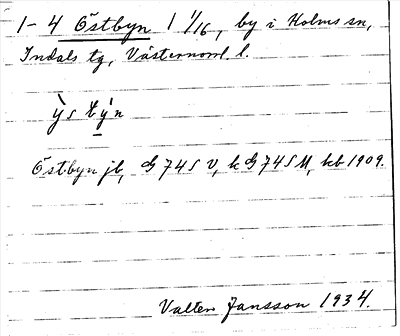 1-4 Östbyn 1 1/16, by i Holms sn,
Indals tg, Västernorrl. l.
Östbyn jb, G 745 V, k G 745 M, kb 1909.
Valter Jansson 1934.